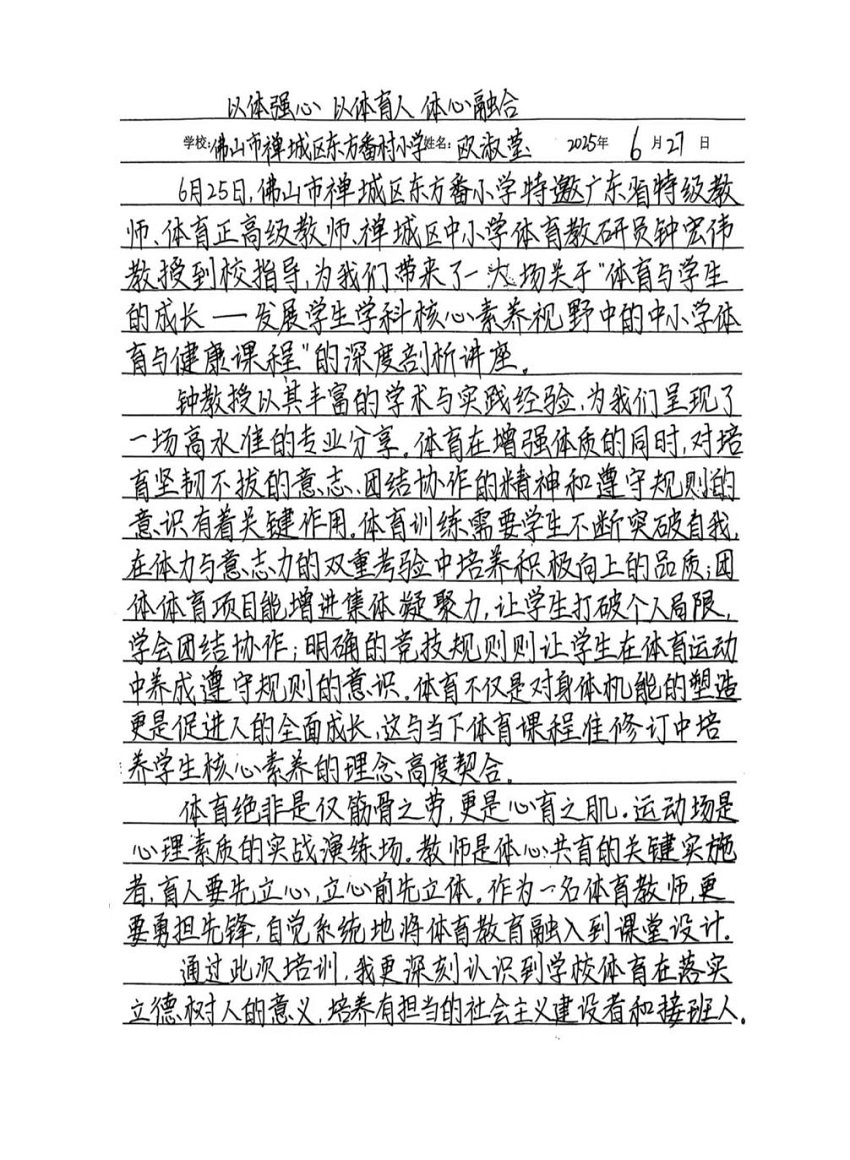 以体强心 以体育人 体心融合
学校:佛山市禅城区东方番村小学 姓名:欧淑莹 2025年 6 月 27 日
6月25日,佛山市禅城区东方番小学特邀广东省特级教
师、体育正高级教师、禅城区中小学体育教研员钟宏伟
教授到校指导,为我们带来了一场关于“体育与学生
的成长——发展学生学科核心素养视野中的中小学体
育与健康课程”的深度剖析讲座。
钟教授以其丰富的学术与实践经验,为我们呈现了
一场高水准的专业分享。体育在增强体质的同时,对培
育坚韧不拔的意志、团结协作的精神和遵守规则的
意识有着关键作用。体育训练需要学生不断突破自我,
在体力与意志力的双重考验中培养积极向上的品质;团
体体育项目能增进集体凝聚力,让学生打破个人局限,
学会团结协作;明确的竞技规则则让学生在体育运动
中养成遵守规则的意识。体育不仅是对身体机能的塑造
更是促进人的全面成长,这与当下体育课程准修订中培
养学生核心素养的理念、高度契合。
体育绝非是仅筋骨之劳,更是心育之肌。运动场是
心理素质的实战演练场。教师是体心共育的关键实施
者,育人要先立心,立心前先立体。作为一名体育教师,更
要勇担先锋,自觉系统地将体育教育融入到课堂设计.
通过此次培训,我更深刻认识到学校体育在落实
立德树人的意义,培养有担当的社会主义建设者和接班人。